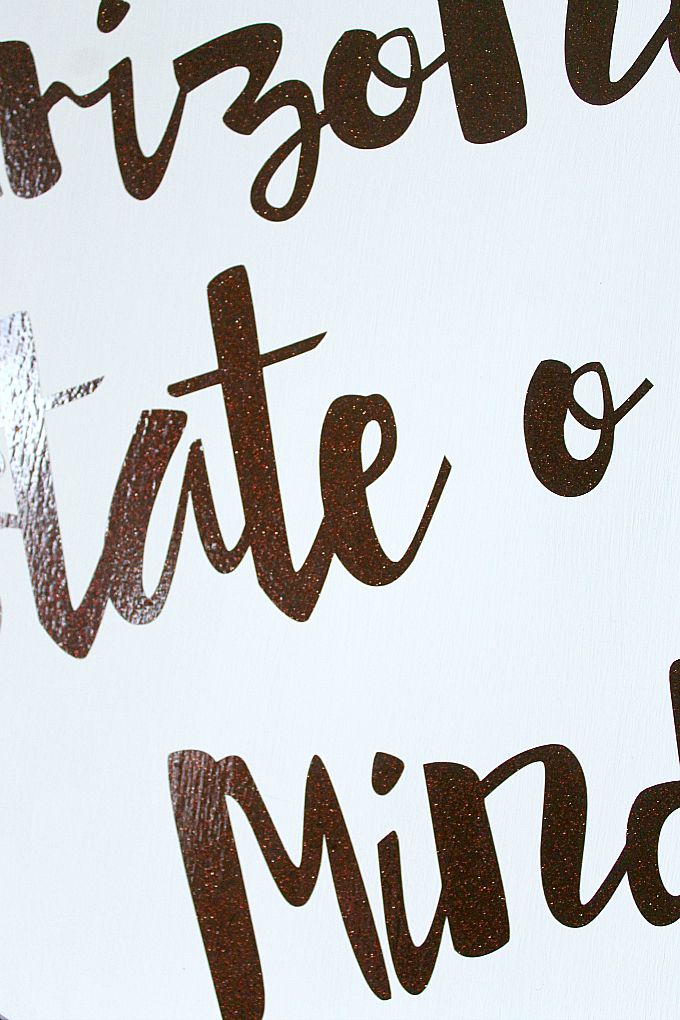 rizon
tate o
Mind